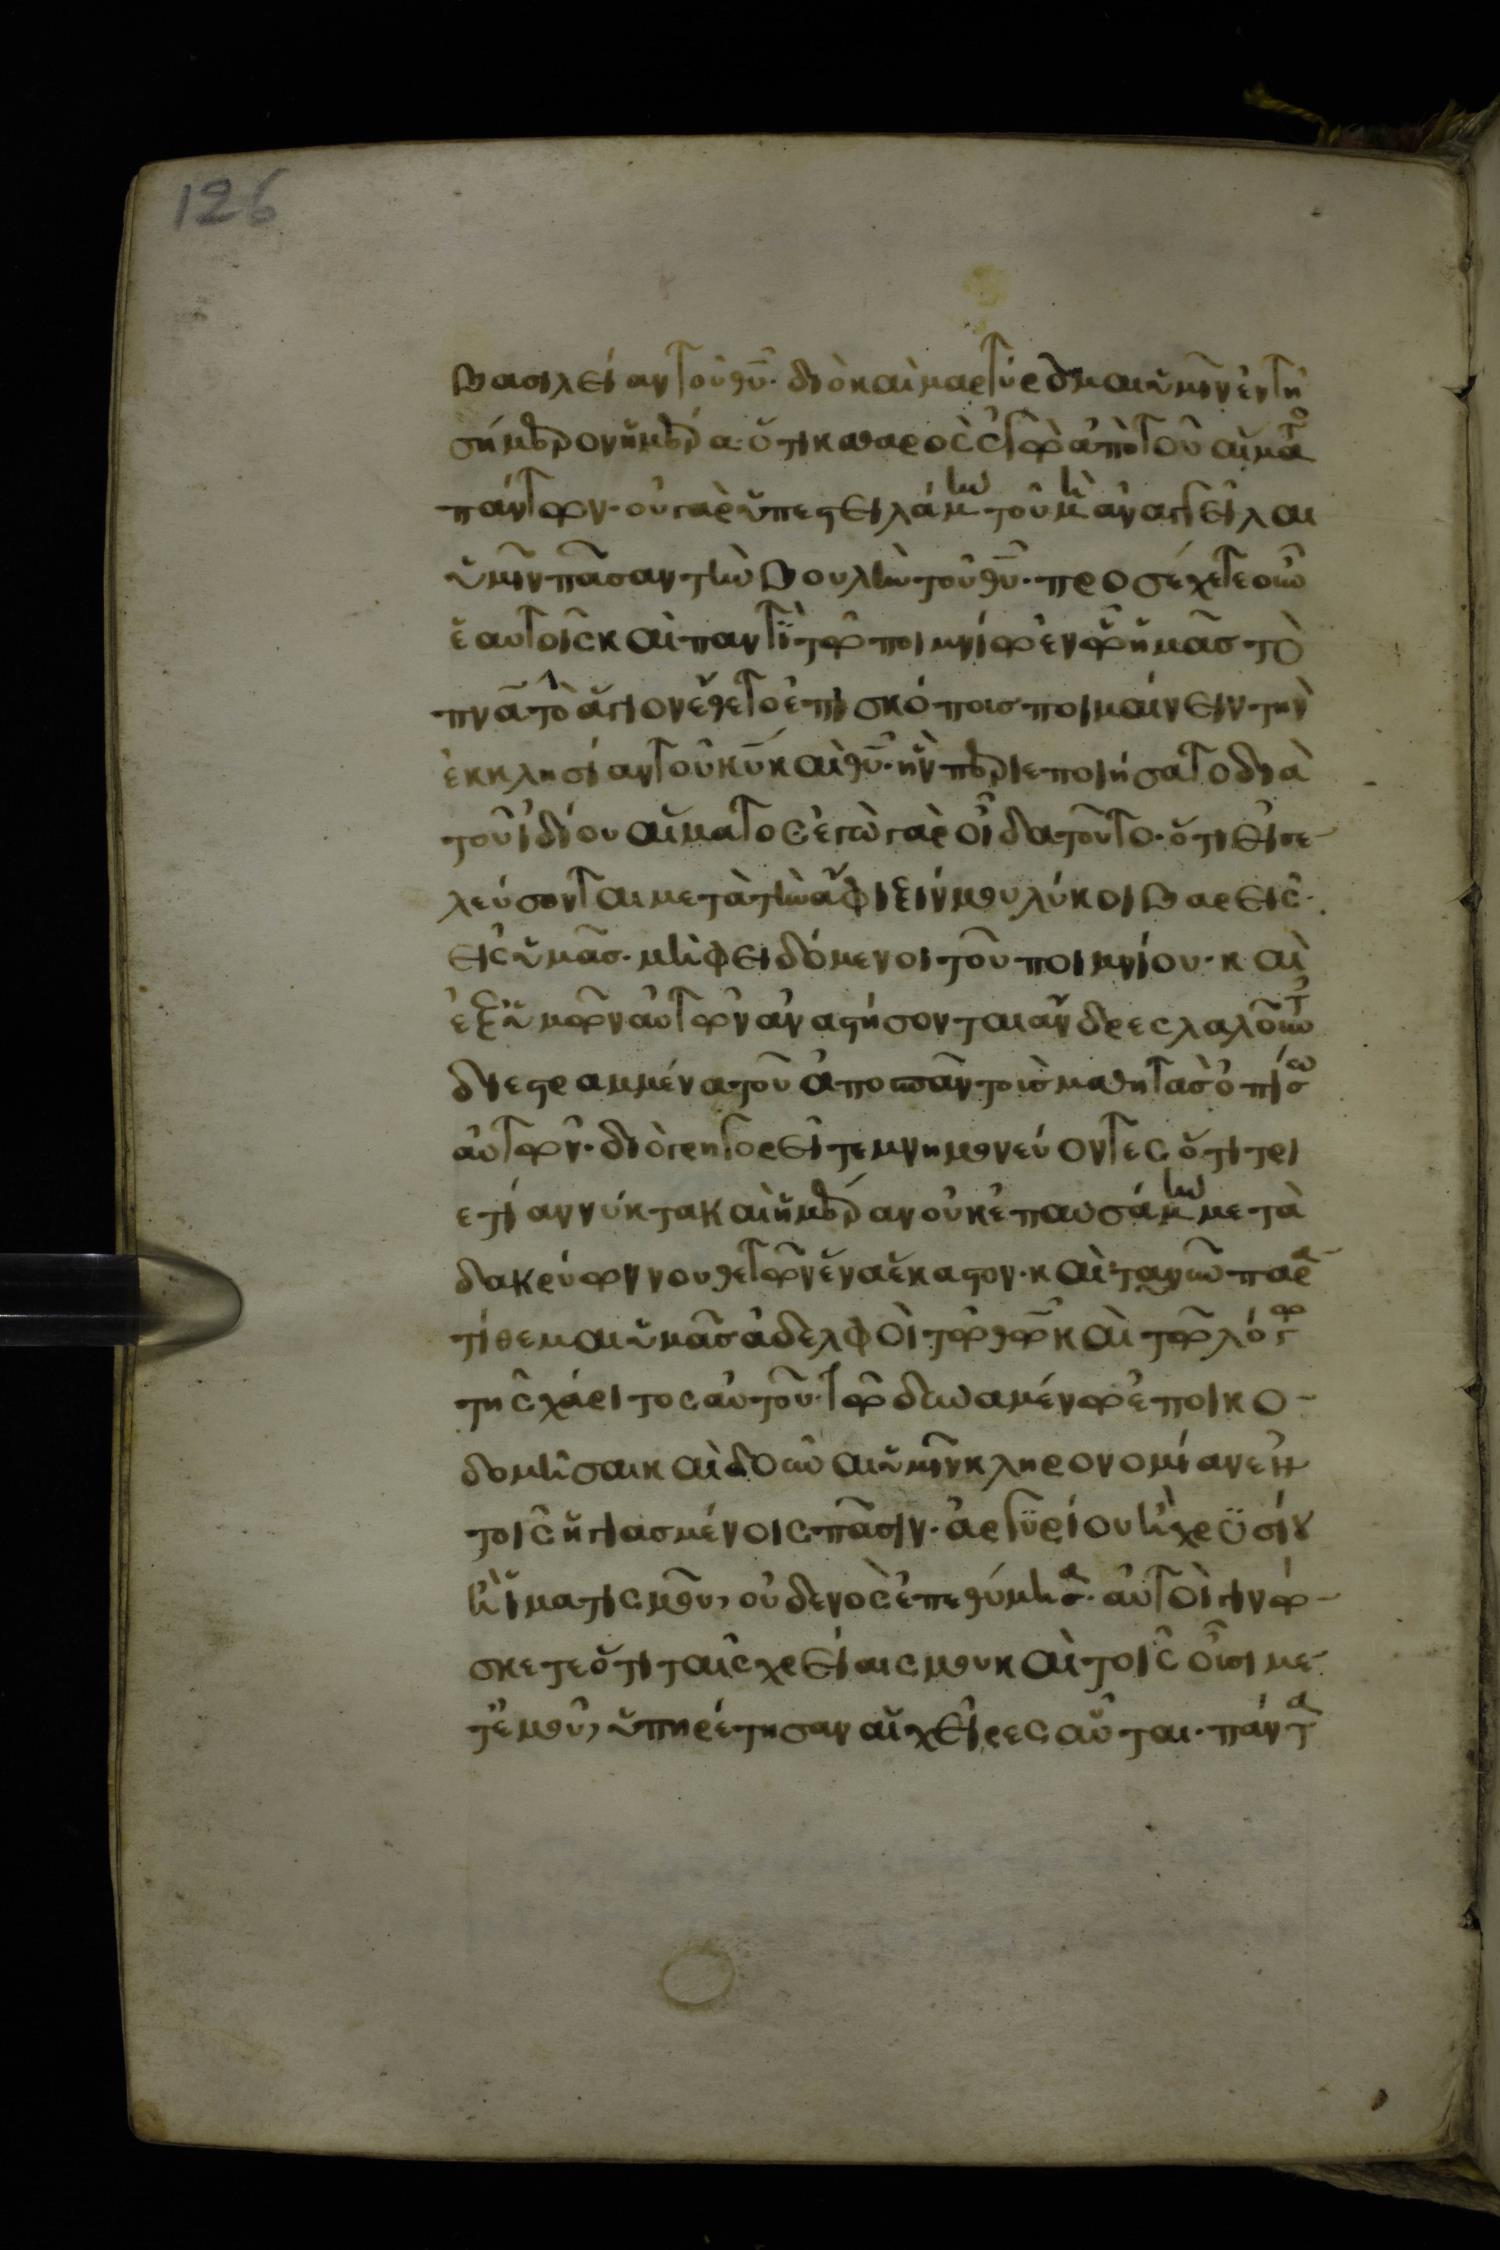 126
βασιλείαν τοῦ θῦ· διὸ καὶ μαρτύρομαι ὑμῖν ἐν τῆ
σήμερον ἡμέρα· ὅτι καθαρὸς ἐγὼ ἀπὸ τοῦ αἵματο
πάντων· οὐ γὰρ ὑπεστειλάμην τοῦ μὴ ἀναγγεῖλαι
ὑμῖν πᾶσαν τὴν βουλὴν τοῦ θῦ· προσέχετε οὖν
ἑαυτοῖς καὶ παντὶ τῶ ποιμνίω ἐν ὧ ὑμᾶς τὸ
πνᾶ τὸ ἅγιον ἔθετο ἐπισκόποις ποιμαίνειν τὴν
ἐκκλησίαν τοῦ κῦ καὶ θῦ· ἣν περιεποιήσατο διὰ
τοῦ ἰδίου αἵματος ἐγὼ γὰρ οἶδα τοῦτο· ὅτι εἰσε-
λεύσονται μετὰ τὴν ἄφιξίν μου λύκοι βαρεῖς
εἰς ὑμᾶς· μὴ φειδόμενοι τοῦ ποιμνίου· καὶ
ἐξ ὑμῶν αὐτῶν ἀναστήσονται ἄνδρες λαλοῦντ
διεστραμμένα τοῦ ἀποσπᾶν τοὺς μαθητὰς ὀπίσω
αὐτῶν· διὸ γρηγορεῖτε μνημονεύοντες ὅτι τρι
ετίαν νύκτα καὶ ἡμέραν οὐκ ἐπαυσάμην μετὰ
δακρύων νουθετῶν ἕνα ἕκαστον· καὶ τανῦν παρα
τίθεμαι ὑμᾶς ἀδελφοὶ τῶ θῶ καὶ τῶ λόγω
τῆς χάριτος αὐτοῦ· τῶ δυναμένω ἐποικο-
δομῆσαι καὶ δοῦναι ὑμῖν κληρονομίαν ἐν
τοῖς ἡγιασμένοις πᾶσιν· ἀργυρίου ἢ χρυσίου
ἢ ἱματισμοῦ, οὐδενὸς ἐπεθύμησα· αὐτοὶ γινώ-
σκετε ὅτι ταῖς χρείαις μου καὶ τοῖς οὖσι με
τ' ἐμοῦ, ὑπηρέτησαν αἱ χεῖρες αὗται· πάντα